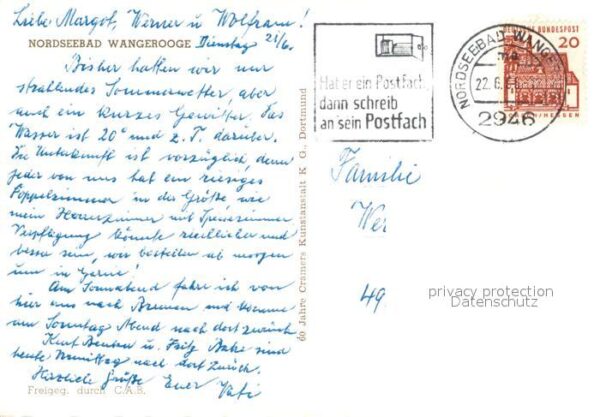 Liebe Margot, Werner u Wolfram!
Dienstag 21/6.
NORDSEEBAD WANGEROOGE
Bisher hatten wir nur
strahlendes Sommerwetter, aber
auch ein kurzes Gewitter. Das
Wasser ist 20° und z. T. darüber.
Die Unterkunft ist vorzüglich, denn
jeder von uns hat ein riesiges
Doppelzimmer in der Größe, wie
mein Herrenzimmer mit Speisezimmer
Verpflegung könnte reichlicher und
besser sein, wir bestellen ab morgen
um in Garni!
Am Sonnabend fahre ich von
hier aus nach Bremen und komme
am Sonntag Abend nach dort zurück
Kurt u. Fritz sind
heute Vormittag nach dort zurück.
Herzliche Grüße Euer Vati
Freigeg. durch C.A.B.
60 Jahre Cramers Kunstanstalt K G., Dortmund
Hat er ein Postfach,
dann schreib
an sein Postfach
NORDSEEBAD WANGER
22.6.
2946
DEUTSCHE BUNDESPOST
20
HESSEN
Familie
Wer
49
privacy protection
Datenschutz